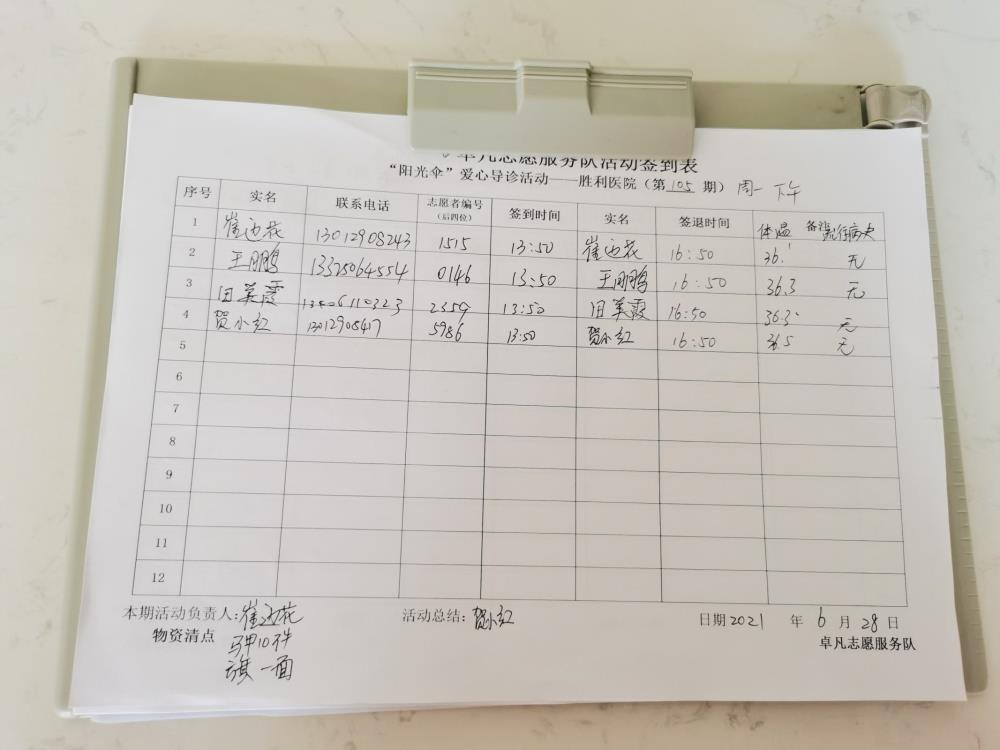 卓凡志愿服务队活动签到表
“阳光伞”爱心导诊活动——胜利医院（第 105 期） 周一 下午
序号 实名 联系电话 志愿者编号（后四位） 签到时间 实名 签退时间 体温 备注 流行病史
1 崔迎花 13012908243 1515 13:50 崔迎花 16:50 36.1 无
2 王鹏鹏 13325064554 0146 13:50 王鹏鹏 16:50 36.3 无
3 田美霞 13506110323 2559 13:50 田美霞 16:50 36.3 无
4 贺小红 13012908417 5986 13:50 贺小红 16:50 36.5 无
5
6
7
8
9
10
11
12
本期活动负责人：崔迎花 活动总结：贺小红 日期 2021 年 6 月 28 日
物资清点 马甲10件 卓凡志愿服务队
旗一面